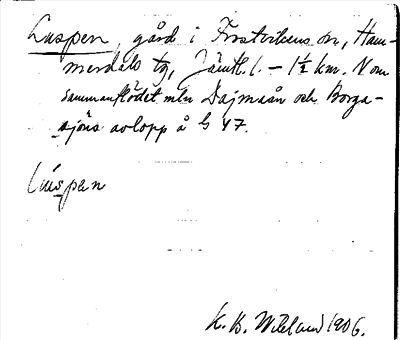 Luspen, gård i Frostvikens sn, Ham-
merdals tg, Jämtl. l. – 1½ km. N om
sammanflödet mln Dajmaån och Borga-
sjöns avlopp å G 47.
Lúspen
K. B. Wiklund 1906.